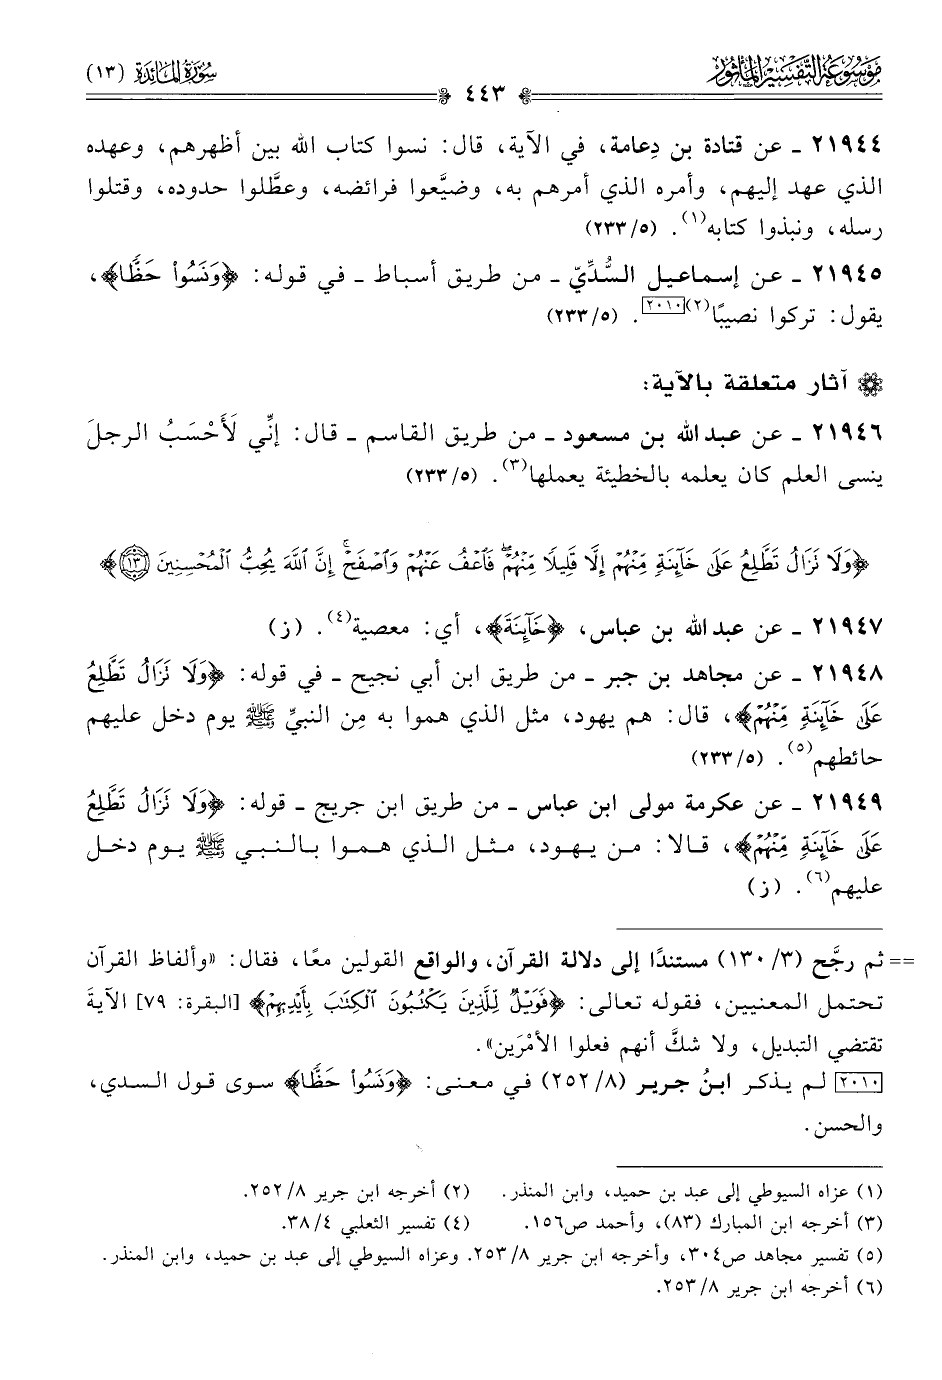 مَوْسُوعَةُ التَّفْسِيرِ المَأْثُورِ
سُورَةُ المَائِدَةِ (١٣)
٤٤٣
٢١٩٤٤ ـ عن قتادة بن دِعامة، في الآية، قال: نسوا كتاب الله بين أظهرهم، وعهده
الذي عهد إليهم، وأمره الذي أمرهم به، وضيَّعوا فرائضه، وعطَّلوا حدوده، وقتلوا
رسله، ونبذوا كتابه(١). (٥/ ٢٣٣)
٢١٩٤٥ ـ عن إسماعيل السُّدِّيّ ـ من طريق أسباط ـ في قوله: ﴿وَنَسُوا۟ حَظًّا﴾،
يقول: تركوا نصيبًا(٢)[٢٠١٠]. (٥/ ٢٣٣)
آثار متعلقة بالآية:
٢١٩٤٦ ـ عن عبد الله بن مسعود ـ من طريق القاسم ـ قال: إنِّي لَأَحْسَبُ الرجلَ
ينسى العلم كان يعلمه بالخطيئة يعملها(٣). (٥/ ٢٣٣)
﴿وَلَا تَزَالُ تَطَّلِعُ عَلَىٰ خَآئِنَةٍ مِّنْهُمْ إِلَّا قَلِيلًا مِّنْهُمْ ۖ فَٱعْفُ عَنْهُمْ وَٱصْفَحْ ۚ إِنَّ ٱللَّهَ يُحِبُّ ٱلْمُحْسِنِينَ ١٣﴾
٢١٩٤٧ ـ عن عبد الله بن عباس، ﴿خَآئِنَةَ﴾، أي: معصية(٤). (ز)
٢١٩٤٨ ـ عن مجاهد بن جبر ـ من طريق ابن أبي نجيح ـ في قوله: ﴿وَلَا تَزَالُ تَطَّلِعُ
عَلَىٰ خَآئِنَةٍ مِّنْهُمْ﴾، قال: هم يهود، مثل الذي هموا به مِن النبيِّ ﷺ يوم دخل عليهم
حائطهم(٥). (٥/ ٢٣٣)
٢١٩٤٩ ـ عن عكرمة مولى ابن عباس ـ من طريق ابن جريج ـ قوله: ﴿وَلَا تَزَالُ تَطَّلِعُ
عَلَىٰ خَآئِنَةٍ مِّنْهُمْ﴾، قالا: من يهود، مثل الذي هموا بالنبي ﷺ يوم دخل
عليهم(٦). (ز)
== ثم رجَّح (٣/ ١٣٠) مستندًا إلى دلالة القرآن، والواقع القولين معًا، فقال: «وألفاظ القرآن
تحتمل المعنيين، فقوله تعالى: ﴿فَوَيْلٌ لِّلَّذِينَ يَكْتُبُونَ ٱلْكِتَٰبَ بِأَيْدِيهِمْ﴾ [البقرة: ٧٩] الآيةَ
تقتضي التبديل، ولا شكَّ أنهم فعلوا الأمْرَين».
[٢٠١٠] لم يذكر ابنُ جرير (٨/ ٢٥٢) في معنى: ﴿وَنَسُوا۟ حَظًّا﴾ سوى قول السدي،
والحسن.
(١) عزاه السيوطي إلى عبد بن حميد، وابن المنذر. (٢) أخرجه ابن جرير ٨/ ٢٥٢.
(٣) أخرجه ابن المبارك (٨٣)، وأحمد ص١٥٦. (٤) تفسير الثعلبي ٤/ ٣٨.
(٥) تفسير مجاهد ص٣٠٤، وأخرجه ابن جرير ٨/ ٢٥٣. وعزاه السيوطي إلى عبد بن حميد، وابن المنذر.
(٦) أخرجه ابن جرير ٨/ ٢٥٣.